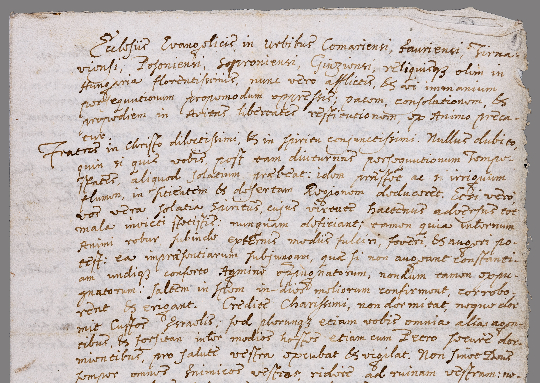 Ecclesiis Evangelicis in Urbibus Comariensi, Jauriensi, Tirna-
viensi, Posoniensi, Soproniensi, Ginziensi, reliquisq; olim in
Hungaria florentissimis, nunc vero afflictis, & ob immanium
persequutionum propemodum oppressis, pacem, consolationem, &
propediem in avitas libertates restitutionem, ex Animo preca-
tur.
Fratres in Christo dilectissimi, & in spiritu conjunctissimi. Nullus dubito,
quin si quis vobis, post tam diuturnas persequutionum tempe-
states, aliquod solatium praebeat: idem praestet ac si irriguum
flumen, in sitientem & desertam Regionem deduceret. Etsi vero
vos vera solatia Spiritus, cujus virtute hactenus adversus tot
mala invicti stetistis; nunquam deficiant; tamen quia internum
Animi robur, subinde externis modis fulciri, foveri, & augeri po-
test: ea impraesentiarum subjungam, quae si non augeant constanti-
am undiq; conferto Agmine oppugnatorum, nondum tamen expu-
gnatorum; saltem in spem indies meliorem confirment, corrobo-
rent & erigant. Credite Charissimi, non dormitat, neque dor-
mit Custos Israelis: sed plerunq; etiam vobis omnia alia agen-
tibus, & forsitan inter medios hostes etiam cum Petro secure dor-
mientibus, pro salute vestra excubat & vigilat. Non sinet Deus
semper omnes Inimicos vestros, ridere ad ruinam vestram: ne-